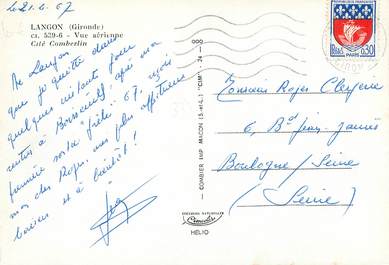 le 21.6.67
LANGON (Gironde)
CA. 539-6 - Vue aérienne
Cité Comberlin
De Langon
que je quitte dans
quelques instants pour
rentrer à après mon
première "fête 67, reçois
mon cher Roger, mes plus affectueux
baisers et à bientôt!
COMBIER IMP. MACON (S.-et-L.) "CIM"
EDITIONS NATIONALES
Combier
HÉLIO
PARIS
0,30
Monsieur Roger
6, Bd Jean-Jaurès
Boulogne / Seine
(Seine)